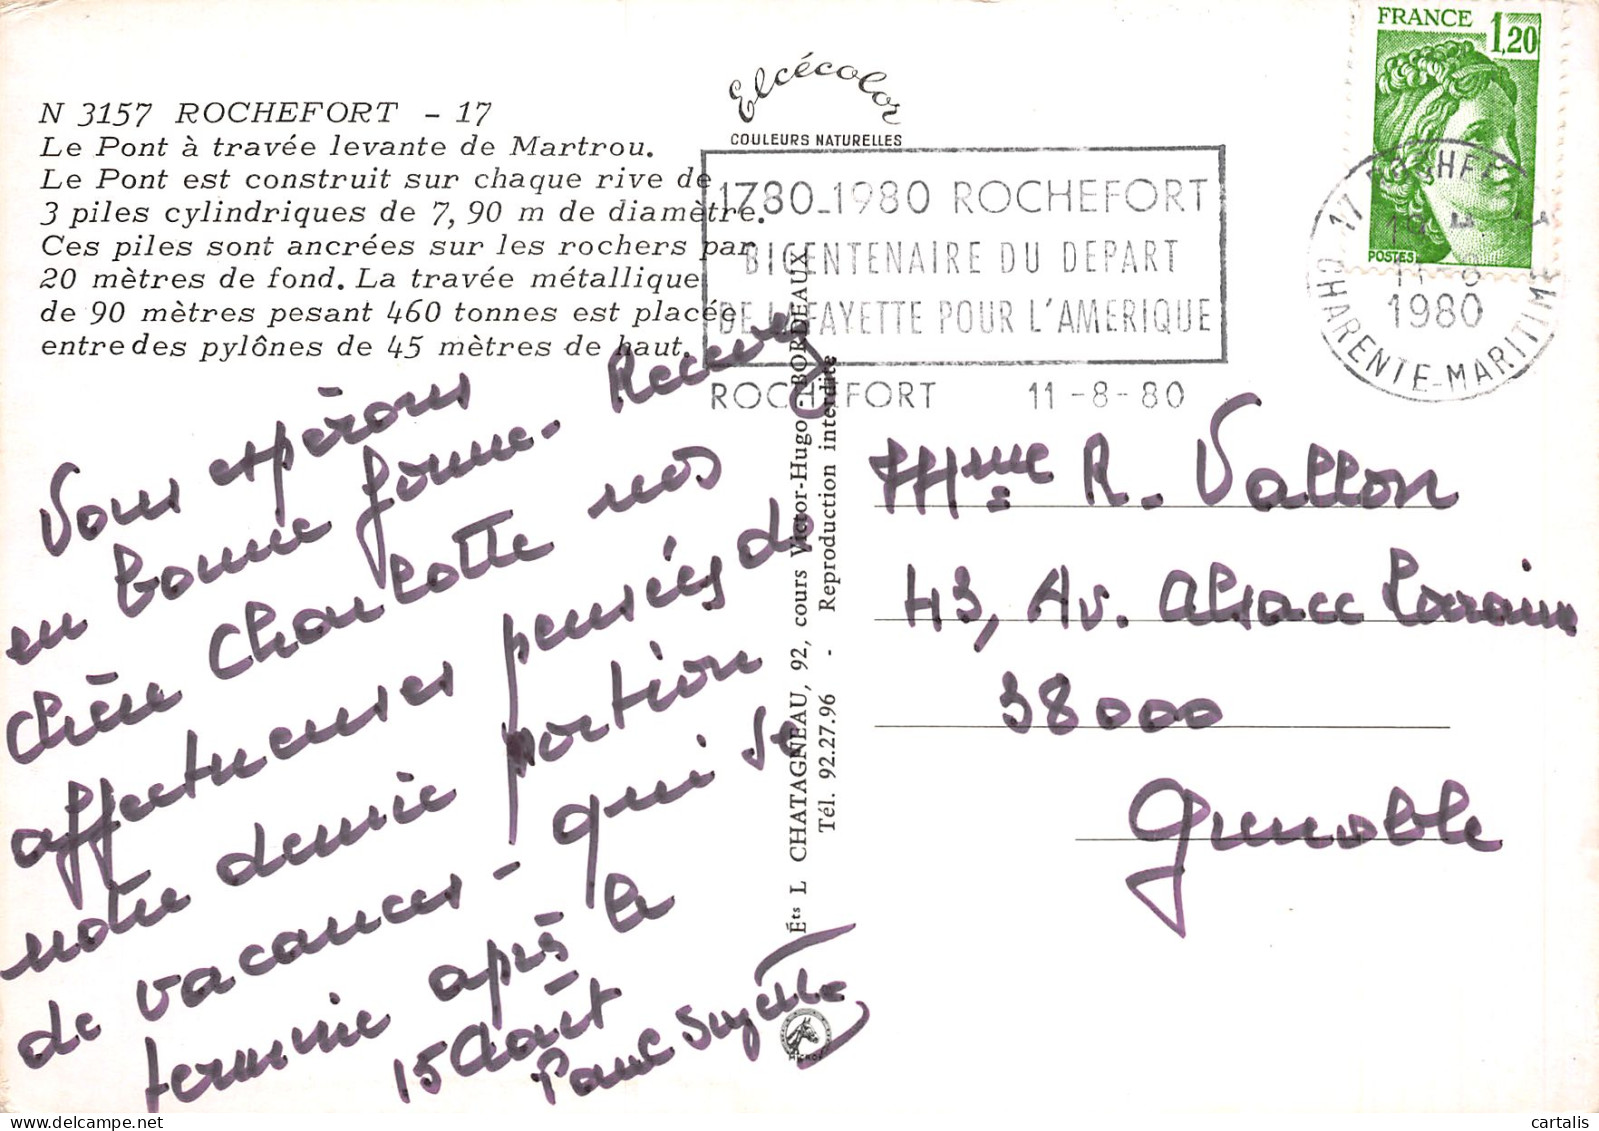 N 3157 ROCHEFORT - 17
Le Pont à travée levante de Martrou.
Le Pont est construit sur chaque rive de
3 piles cylindriques de 7,90 m de diamètre.
Ces piles sont ancrées sur les rochers par
20 mètres de fond. La travée métallique
de 90 mètres pesant 460 tonnes est placée
entre des pylônes de 45 mètres de haut.
Elcécolor
COULEURS NATURELLES
1780-1980 ROCHEFORT
BICENTENAIRE DU DEPART
DE LAFAYETTE POUR L'AMERIQUE
ROCHEFORT 11-8-80
FRANCE
1,20
POSTES
17 ROCHEFORT
1980
CHARENTE-MARITIME
Vous espérons
en bonne forme. Recevez
chère Charlotte nos
affectueuses pensées de
notre demie portion
de vacances - qui se
termine après le
15 Août
Paul Suzette
Éts L CHATAGNEAU, 92, cours Victor-Hugo - BORDEAUX
Tél. 92.27.96 - Reproduction interdite
Mme R. Vallon
43, Av. Alsace Lorraine
38000
Grenoble
cartalis